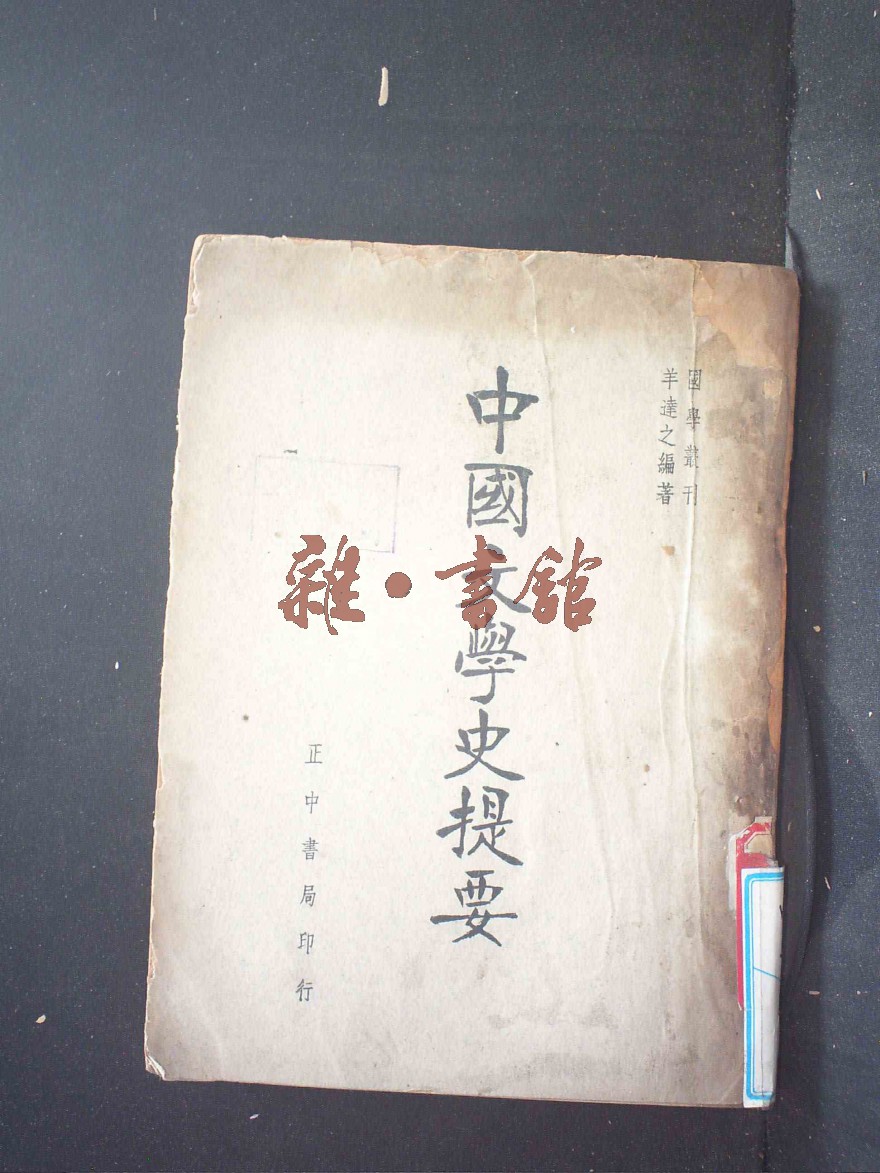 國學叢刊
羊達之編著
中國文學史提要
正中書局印行
雜·書館